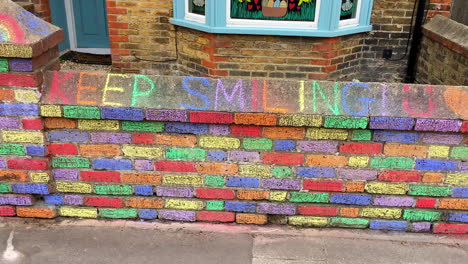 KEEP SMILING!